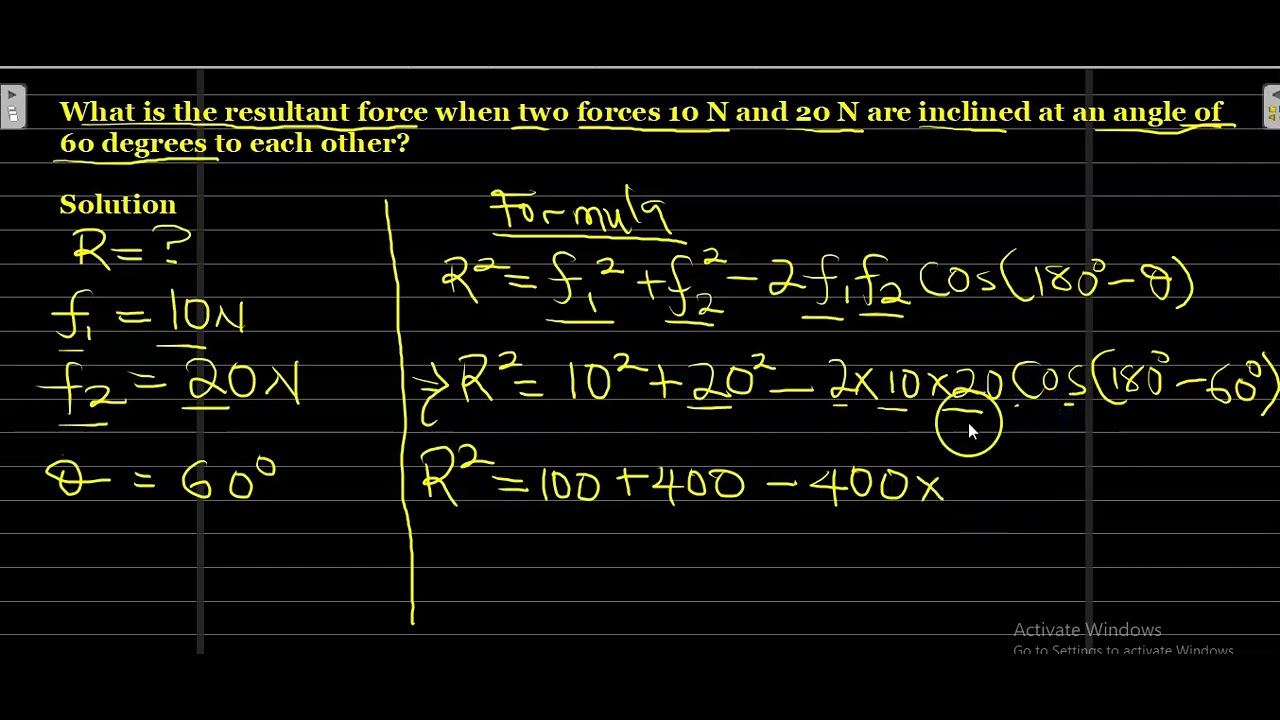 What is the resultant force when two forces 10 N and 20 N are inclined at an angle of
60 degrees to each other?
Solution
R = ?
f₁ = 10N
f₂ = 20N
θ = 60⁰
Formula
R² = f₁² + f₂² - 2f₁f₂ Cos(180⁰ - θ)
⇒ R² = 10² + 20² - 2×10×20 Cos(180⁰ - 60⁰)
R² = 100 + 400 - 400×
Activate Windows
Go to Settings to activate Windows.